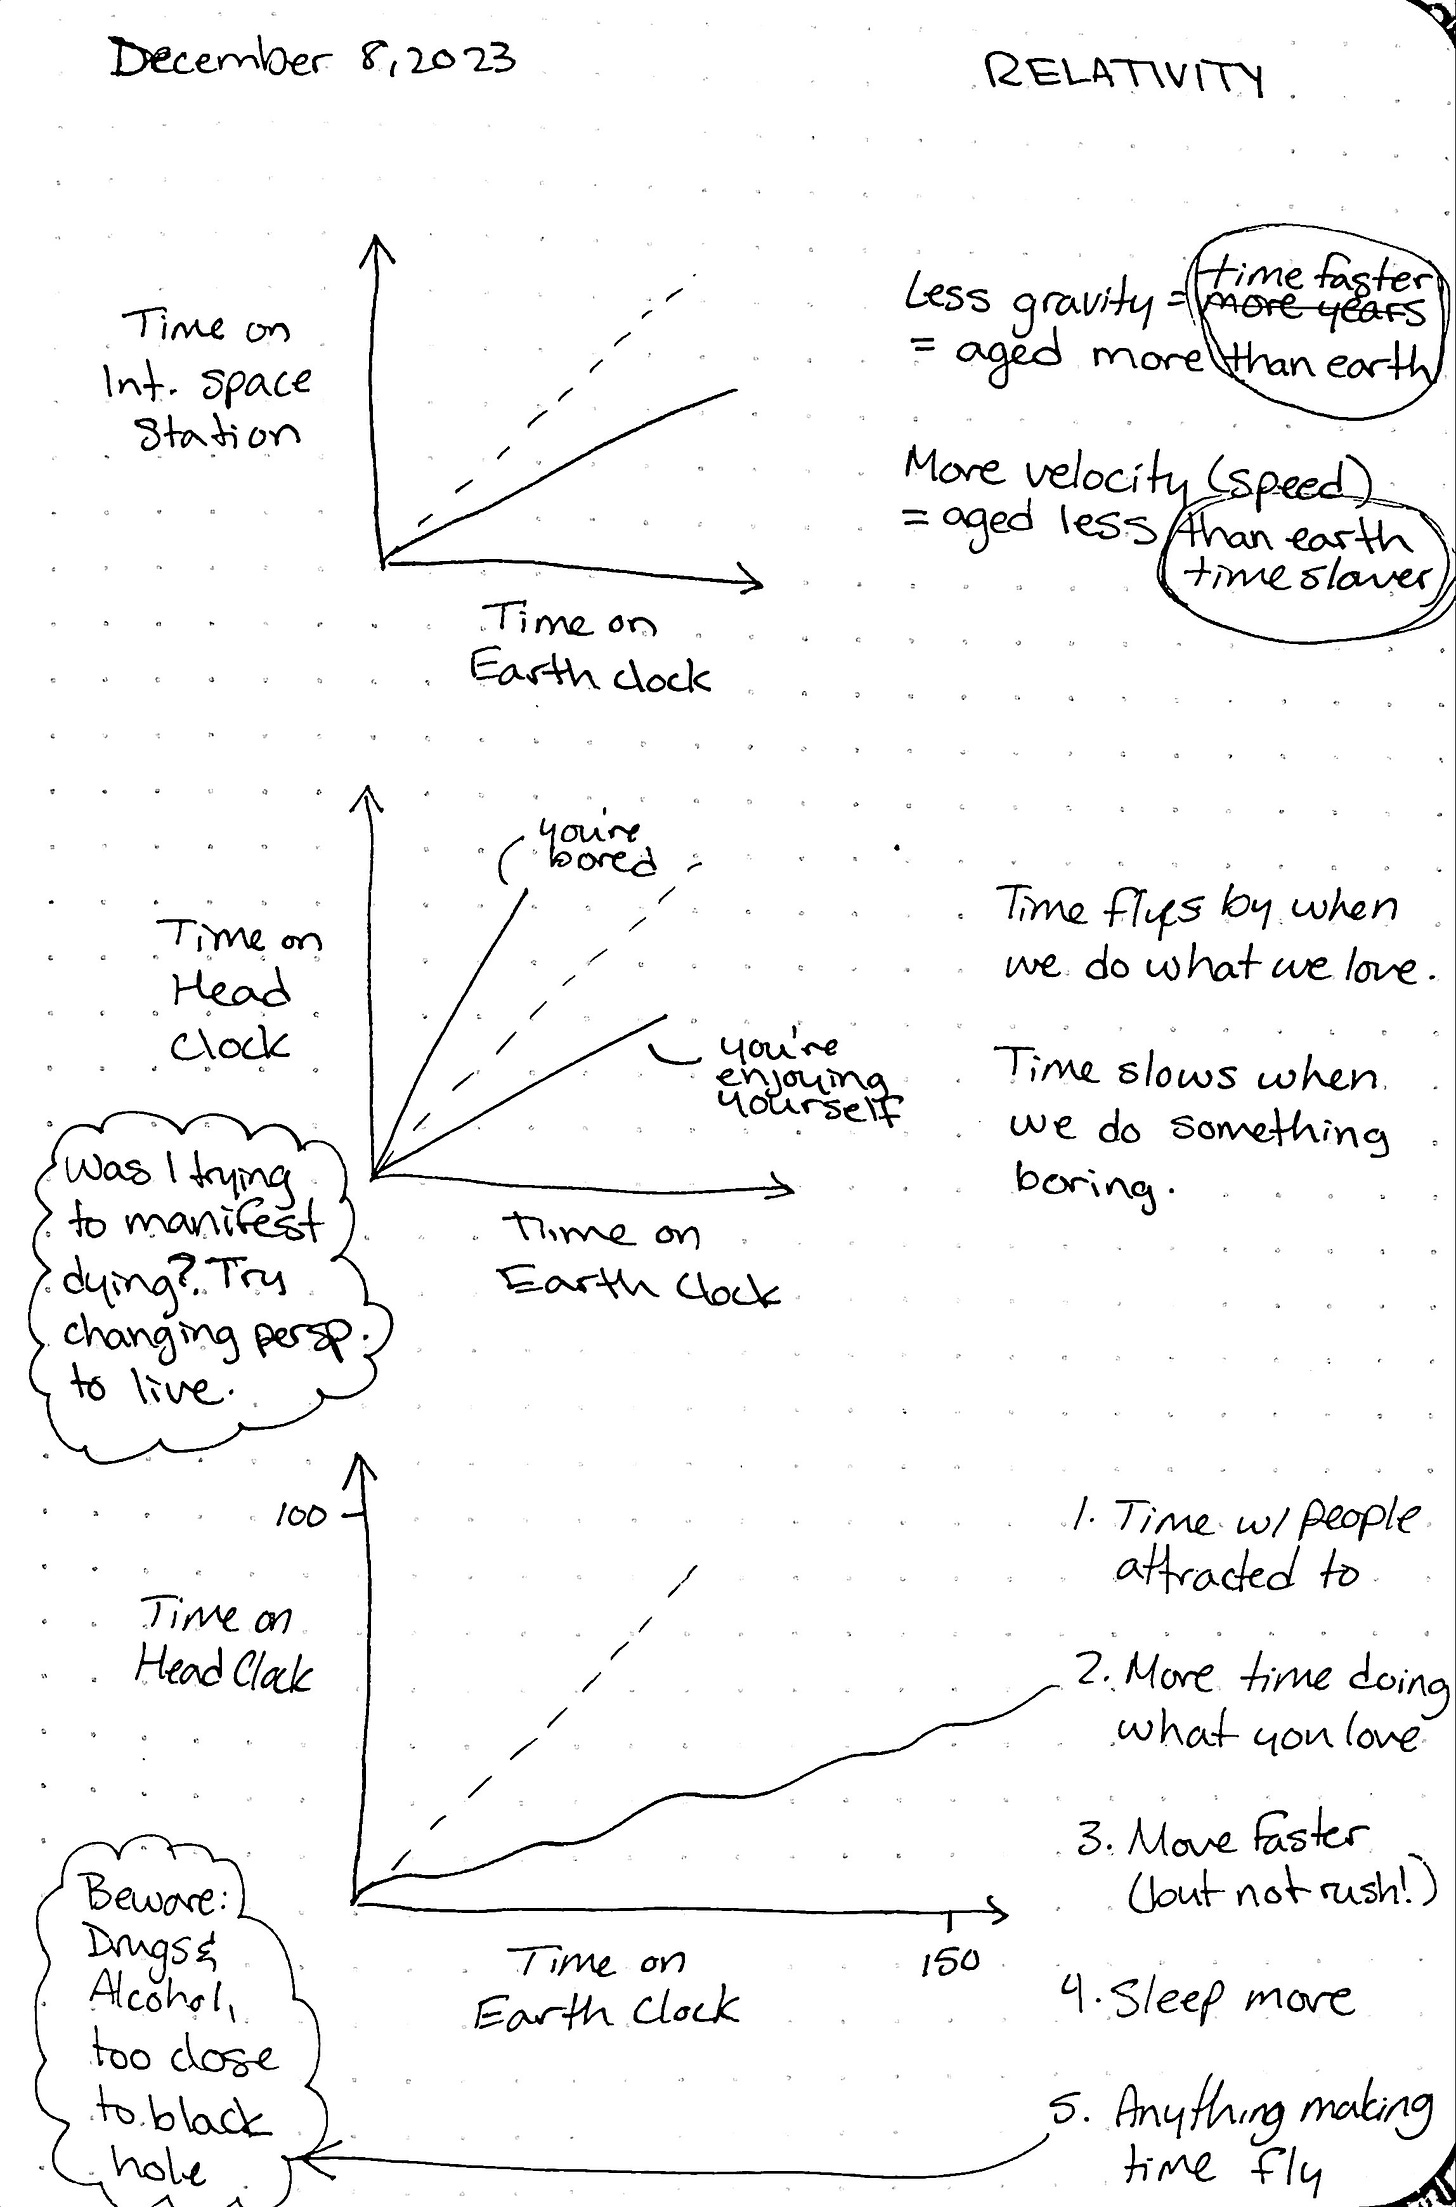 December 8, 2023
RELATIVITY
Time on
Int. space
Station
Time on
Earth clock
Less gravity = time faster
more years
= aged more than earth
More velocity (speed)
= aged less than earth
time slower
Time on
Head
Clock
you're
bored
you're
enjoying
yourself
Time on
Earth Clock
Time flys by when
we do what we love.
Time slows when
we do something
boring.
Was I trying
to manifest
dying? Try
changing persp.
to live.
100
Time on
Head Clock
150
Time on
Earth Clock
1. Time w/ people
attracted to
2. More time doing
what you love
3. Move faster
(but not rush!)
4. Sleep more
5. Anything making
time fly
Beware:
Drugs &
Alcohol,
too close
to black
hole